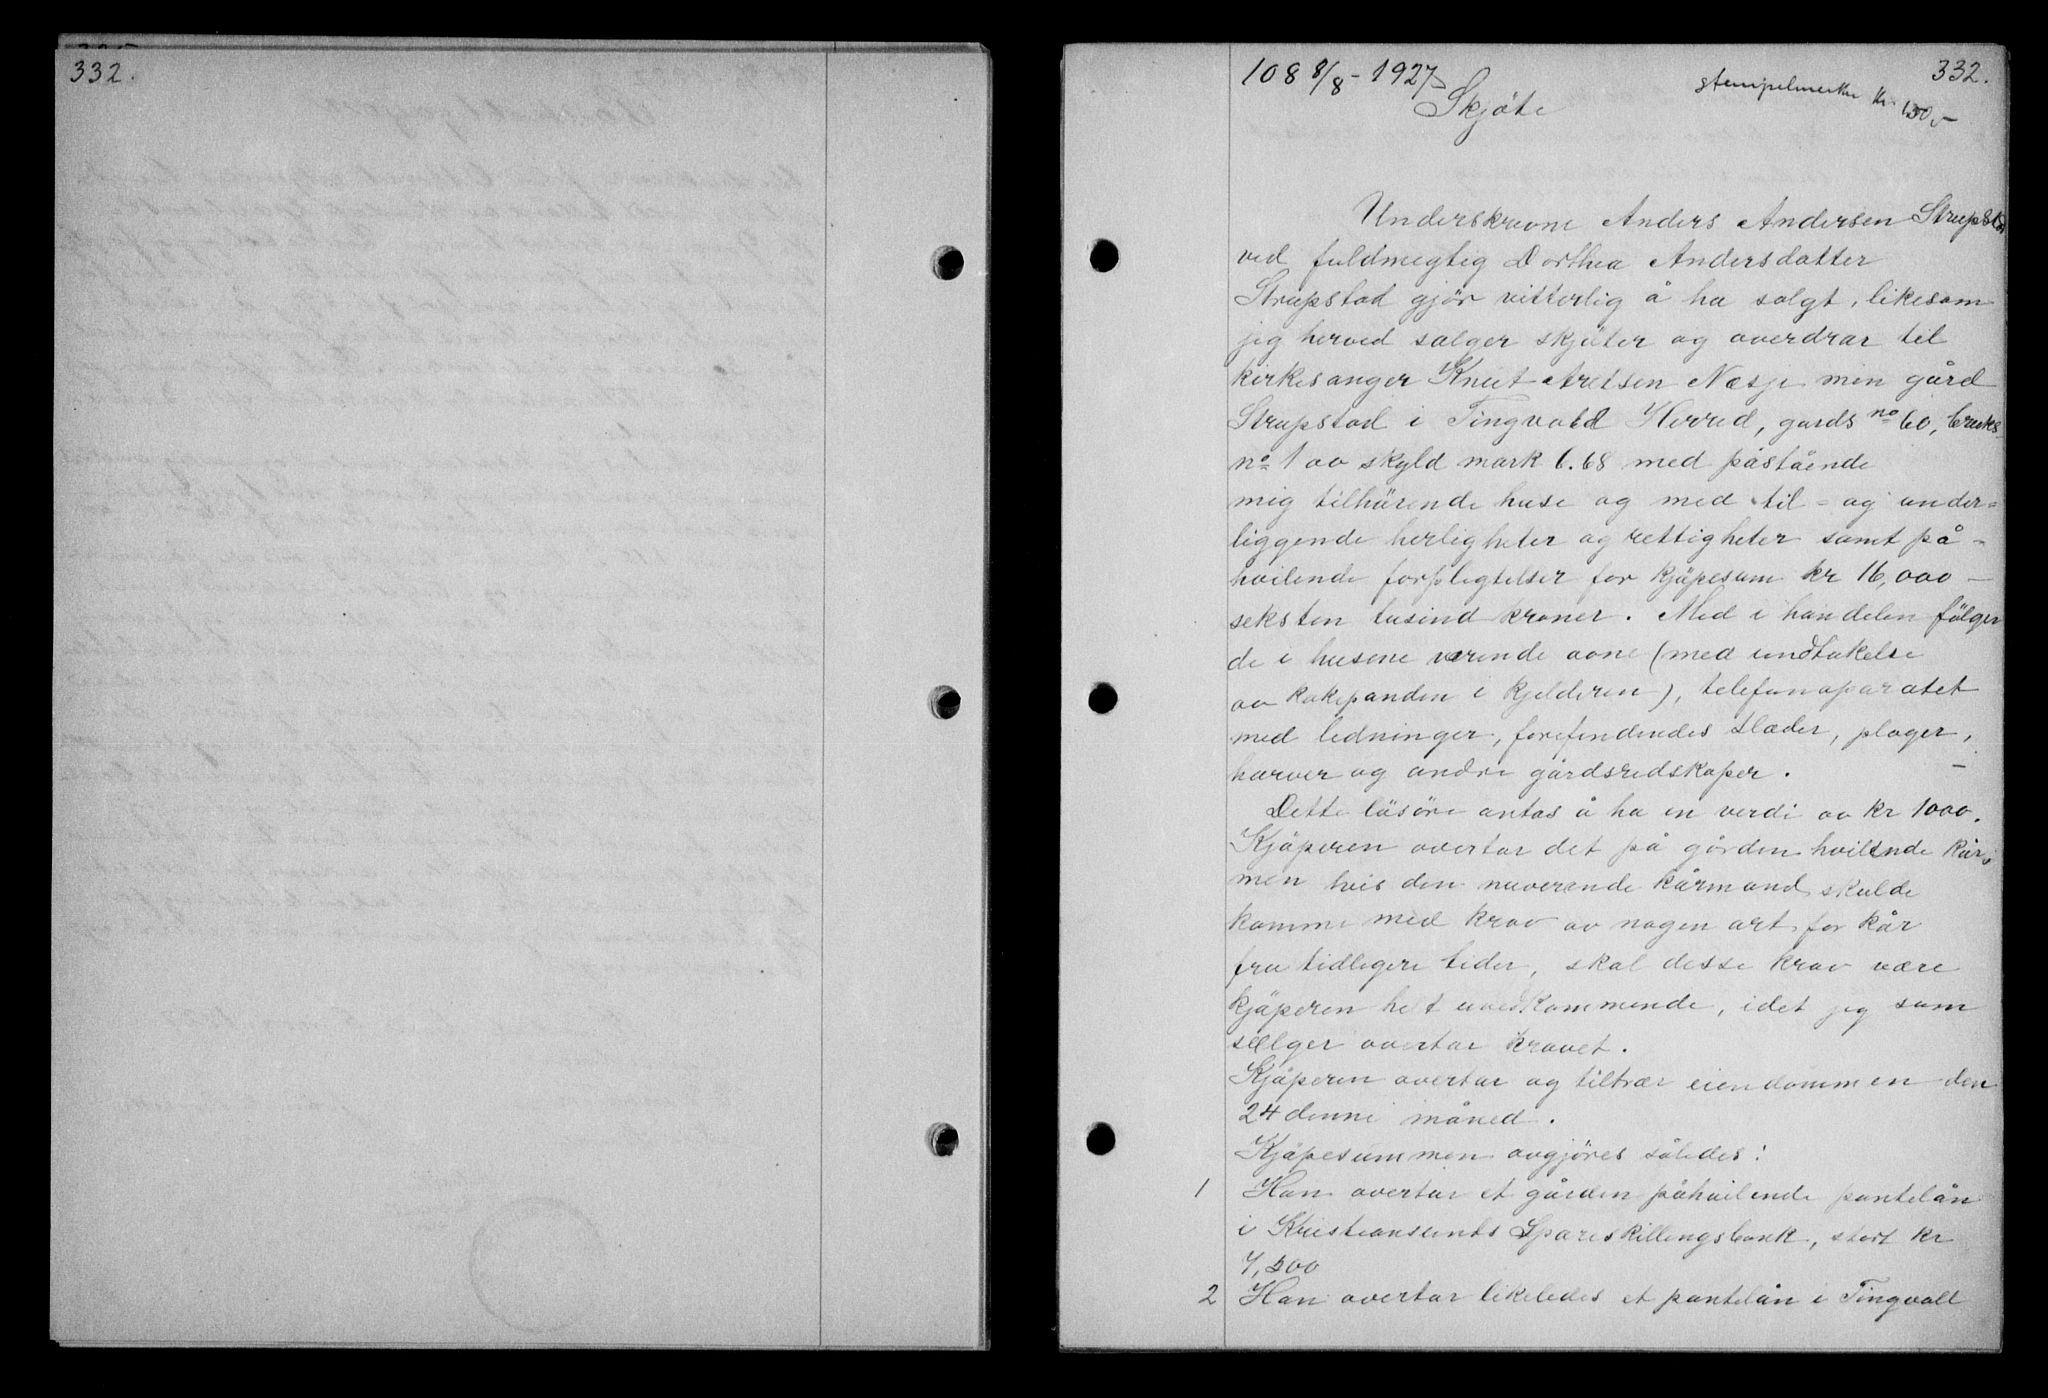 332.
108 8/8 - 1927
332.
stempelmerke kr. 150,-
Skjöte
Underskrevne Anders Andersen Strupstad
ved fuldmegtig Dorthea Andersdatter
Strupstad gjör vitterlig å ha solgt, likesom
jeg herved sælger skjöter og overdrar til
kirkesanger Knut Aretsen Næsje min gård
Strupstad i Tingvold Herred, gards no 60, bruks
no 1 av skyld mark 6.68 med påstående
mig tilhörende huse og med til- og under-
liggende herligheter og rettigheter samt på-
hvilende forpligtelser for kjöpesum kr 16,000 -
seksten tusind kroner. Med i handelen fölger
de i husene værende ovne (med undtakelse
av kokepanden i kjelderen), telefonaparatet
med ledninger, forefindendes slæder, ploger,
harver og andre gårdsredskaper. -
Dette lösöre antas å ha en verdi av kr 1000.
Kjöperen overtar det på gården hvilende kår
men hvis den nuverande kårmand skulde
komme med krav av nogen art for kår
fra tidligere tider, skal desse krav være
kjöperen helt uvedkommende, idet jeg som
sælger overtar kravet.
Kjöperen overtar og tiltrær eiendommen den
24 denne måned.
Kjöpesummen avgjöres således:
1 Han overtar et gården påhvilende pantelån
i Kristiansunds Spareskillingsbank, stort kr
7,500
2 Han overtar likeledes et pantelån i Tingvoll